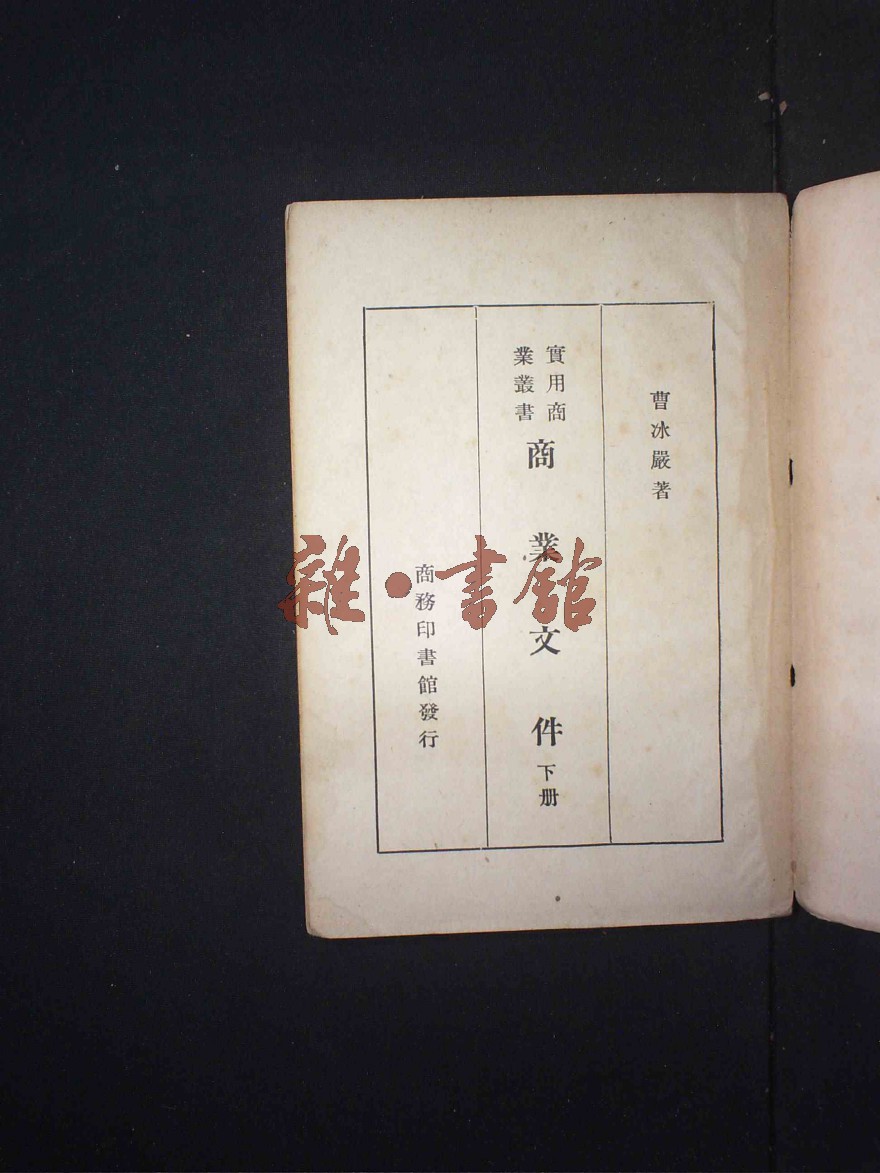 曹冰嚴著
實用商
業叢書
商業文件下册
商務印書館發行
雜·書館